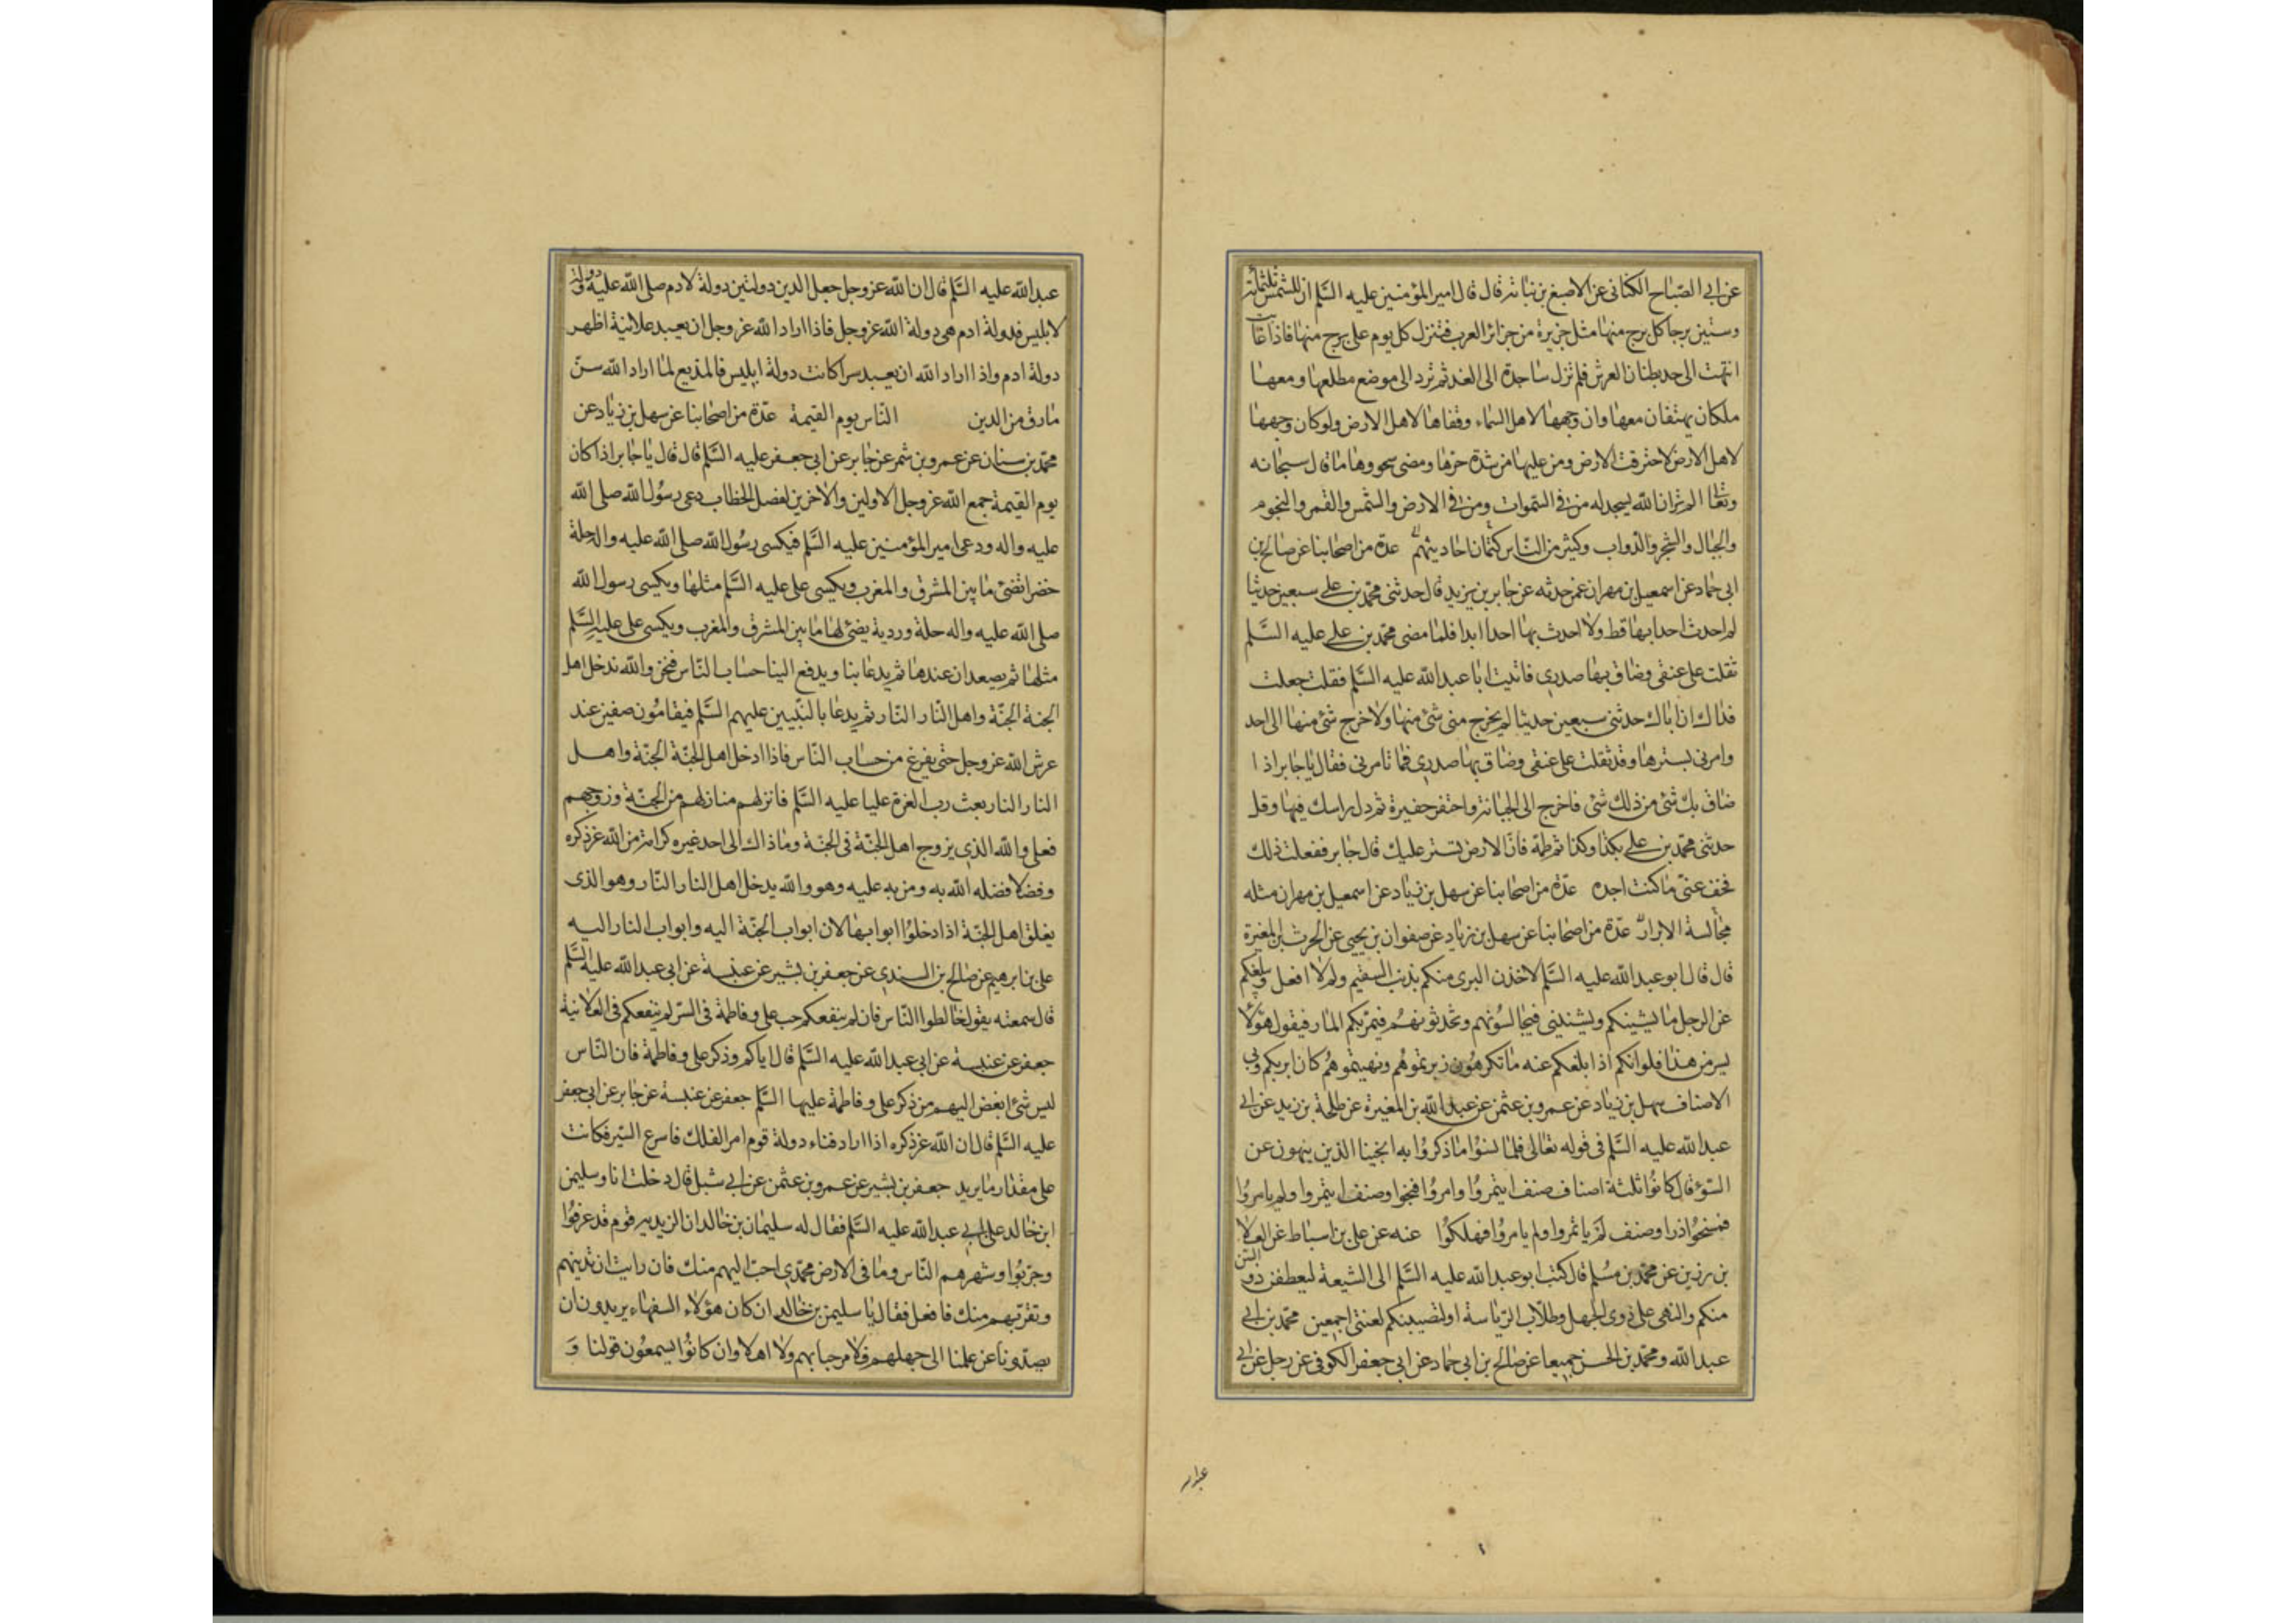 عن ابى الصباح الكنانى عن الاصبغ بن نباتة قال قال امير المؤمنين عليه السلم ان للشمس ثلثمائة
وستين برجا كل برج منها مثل جزيرة من جزائر العرب فتنزل كل يوم على برج منها فاذا غابت
انتهت الى حد بطنان العرش فلم تزل ساجدة الى الغد ثم ترد الى موضع مطلعها ومعها
ملكان يهتفان معها وان وجهها لاهل السماء وقفاها لاهل الارض ولو كان وجهها
لاهل الارض لاحترقت الارض ومن عليها من شدة حرها ومضى سجودها ما قال سبحانه
وتعالى الم تر ان الله يسجد له من فى السموات ومن فى الارض والشمس والقمر والنجوم
والجبال والشجر والدواب وكثير من الناس كتمان احاديثهم عدة من اصحابنا عن صالح بن
ابى حماد عن اسمعيل بن مهران عمن حدثه عن جابر بن يزيد قال حدثنى محمد بن على سبعين حديثا
لم احدث احدا بها قط ولا احدث بها احدا ابدا فلما مضى محمد بن على عليه السلم
ثقلت على عنقى وضاق بها صدرى فاتيت ابا عبد الله عليه السلم فقلت جعلت
فداك ان اباك حدثنى سبعين حديثا لم يخرج منى شئ منها ولا خرج شئ منها الى احد
وامرنى بسترها وقد ثقلت على عنقى وضاق بها صدرى فما تامرنى فقال يا جابر اذا
ضاق بك شئ من ذلك شئ فاخرج الى الجبانة واحتفر حفيرة ثم دل راسك فيها وقل
حدثنى محمد بن على بكذا وكذا ثم طمه فان الارض تستر عليك قال جابر ففعلت ذلك
فخف عنى ما كنت اجده عدة من اصحابنا عن سهل بن زياد عن اسمعيل بن مهران مثله
مجالسة الابرار عدة من اصحابنا عن سهل بن زياد عن صفوان بن يحيى عن الحرث بن المغيرة
قال قال ابو عبد الله عليه السلم لاخذن البرى منكم بذنب السقيم ولم لا افعل ويبلغكم
عن الرجل ما يشينكم ويشيننى فيجالسونهم وتحدثونهم فيمر بكم المار فيقول هؤلا
شر من هذا فلو انكم اذا بلغكم عنه ما تكرهون زبرتموهم ونهيتموهم كان ابر بكم وبى
الاصناف سهل بن زياد عن عمرو بن عثمن عن عبد الله بن المغيرة عن طلحة بن زيد عن ابى
عبد الله عليه السلم فى قوله تعالى فلما نسوا ما ذكروا به انجينا الذين ينهون عن
السوء قال كانوا ثلثة اصناف صنف ايتمروا وامروا فنجوا وصنف ايتمروا ولم يامروا
فمسخوا ذرا وصنف لم ياتمروا ولم يامروا فهلكوا عنه عن على بن اسباط عن العلا
بن رزين عن محمد بن مسلم قال كتب ابو عبد الله عليه السلم الى الشيعة ليعطفن ذوو السن
منكم والنهى على ذوى الجهل وطلاب الرياسة او لتصيبنكم لعنتى اجمعين محمد بن ابى
عبد الله ومحمد بن الحسن جميعا عن صالح بن ابى حماد عن ابى جعفر الكوفى عن رجل عن ابى
عبد الله عليه السلم قال ان الله عز وجل جعل الدين دولتين دولة لادم صلى الله عليه ودولة
لابليس فدولة ادم هى دولة الله عز وجل فاذا اراد الله عز وجل ان يعبد علانية اظهر
دولة ادم واذا اراد الله ان يعبد سرا كانت دولة ابليس فالمذيع لما اراد الله ستر
مارق من الدين الناس يوم القيمة عدة من اصحابنا عن سهل بن زياد عن
محمد بن سنان عن عمرو بن شمر عن جابر عن ابى جعفر عليه السلم قال قال يا جابر اذا كان
يوم القيمة جمع الله عز وجل الاولين والاخرين لفصل الخطاب دعى رسول الله صلى الله
عليه واله ودعى امير المؤمنين عليه السلم فيكسى رسول الله صلى الله عليه واله حلة
خضرا تضئ ما بين المشرق والمغرب ويكسى على عليه السلم مثلها ويكسى رسول الله
صلى الله عليه واله حلة وردية يضئ لها ما بين المشرق والمغرب ويكسى على عليه السلم
مثلها ثم يصعدان عندها ثم يدعا بنا ويدفع الينا حساب الناس فنحن والله ندخل اهل
الجنة الجنة واهل النار النار ثم يدعا بالنبيين عليهم السلم فيقامون صفين عند
عرش الله عز وجل حتى يفرغ من حساب الناس فاذا ادخل اهل الجنة الجنة واهل
النار النار بعث رب العزة عليا عليه السلم فانزلهم منازلهم من الجنة وزوجهم
فعلى والله الذى يزوج اهل الجنة فى الجنة وما ذاك الى احد غيره كرامة من الله عز ذكره
وفضلا فضله الله به ومن به عليه وهو والله يدخل اهل النار النار وهو الذى
يغلق اهل الجنة اذا دخلوا ابوابها لان ابواب الجنة اليه وابواب النار اليه
على بن ابرهيم عن صالح بن السندى عن جعفر بن بشير عن عنبسة عن ابى عبد الله عليه السلم
قال سمعته يقول خالطوا الناس فان لم ينفعكم حب على وفاطمة فى السر لم ينفعكم فى العلانية
جعفر عن عنبسة عن ابى عبد الله عليه السلم قال اياكم وذكر على وفاطمة فان الناس
ليس شئ ابغض اليهم من ذكر على وفاطمة عليها السلم جعفر عن عنبسة عن جابر عن ابى جعفر
عليه السلم قال ان الله عز ذكره اذا اراد فناء دولة قوم امر الفلك فاسرع السير فكانت
على مقدار ما يريد جعفر بن بشير عن عمرو بن عثمن عن ابى شبل قال دخلت انا وسليمن
ابن خالد على ابى عبد الله عليه السلم فقال له سليمان بن خالد ان الزيدية قوم قد عرفوا
وجربوا وشهرهم الناس وما فى الارض محمدى احب اليهم منك فان رايت ان تدنيهم
وتقربهم منك فافعل فقال يا سليمن بن خالد ان كان هؤلاء السفهاء يريدون ان
يصدونا عن علمنا الى جهلهم فلا مرحبا بهم ولا اهلا وان كانوا يسمعون قولنا و